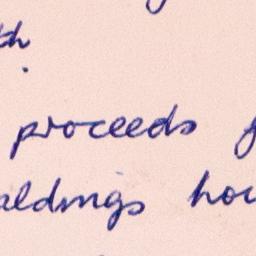 th
proceeds f
aldings hou